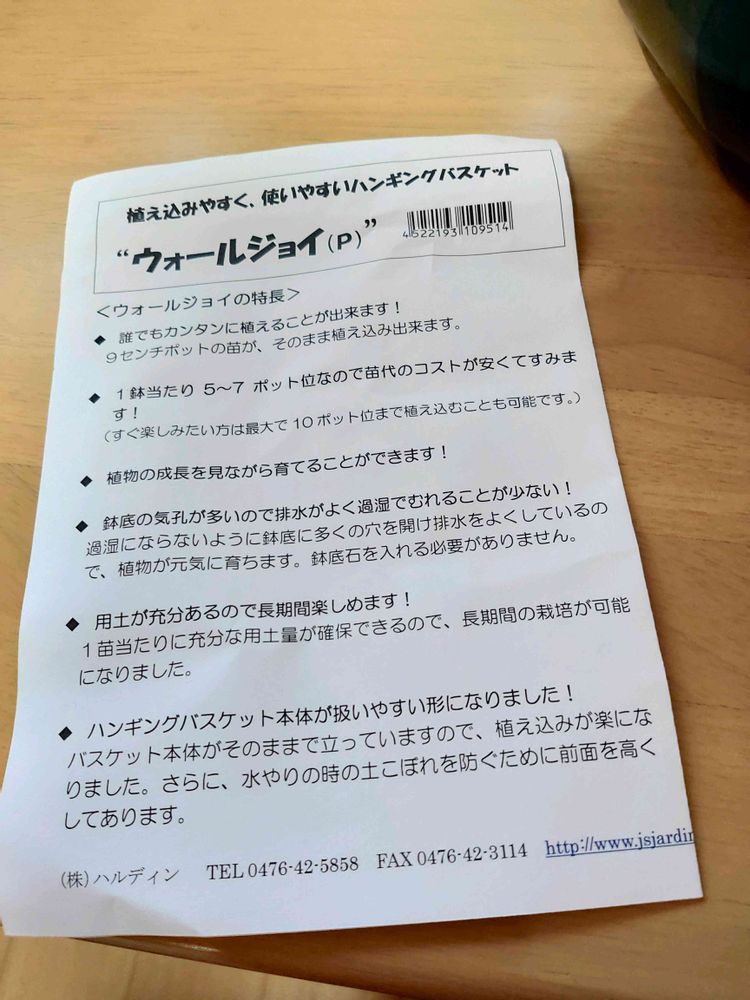 植え込みやすく、使いやすいハンギングバスケット
“ウォールジョイ(P)”
4522193109514
＜ウォールジョイの特長＞
◆ 誰でもカンタンに植えることが出来ます！
９センチポットの苗が、そのまま植え込み出来ます。
◆ １鉢当たり 5～7 ポット位なので苗代のコストが安くてすみま
す！
（すぐ楽しみたい方は最大で 10 ポット位まで植え込むことも可能です。）
◆ 植物の成長を見ながら育てることができます！
◆ 鉢底の気孔が多いので排水がよく過湿でむれることが少ない！
過湿にならないように鉢底に多くの穴を開け排水をよくしているの
で、植物が元気に育ちます。鉢底石を入れる必要がありません。
◆ 用土が充分あるので長期間楽しめます！
１苗当たりに充分な用土量が確保できるので、長期間の栽培が可能
になりました。
◆ ハンギングバスケット本体が扱いやすい形になりました！
バスケット本体がそのままで立っていますので、植え込みが楽にな
りました。さらに、水やりの時の土こぼれを防ぐために前面を高く
してあります。
(株)ハルディン TEL 0476-42-5858 FAX 0476-42-3114 http://www.jsjardin